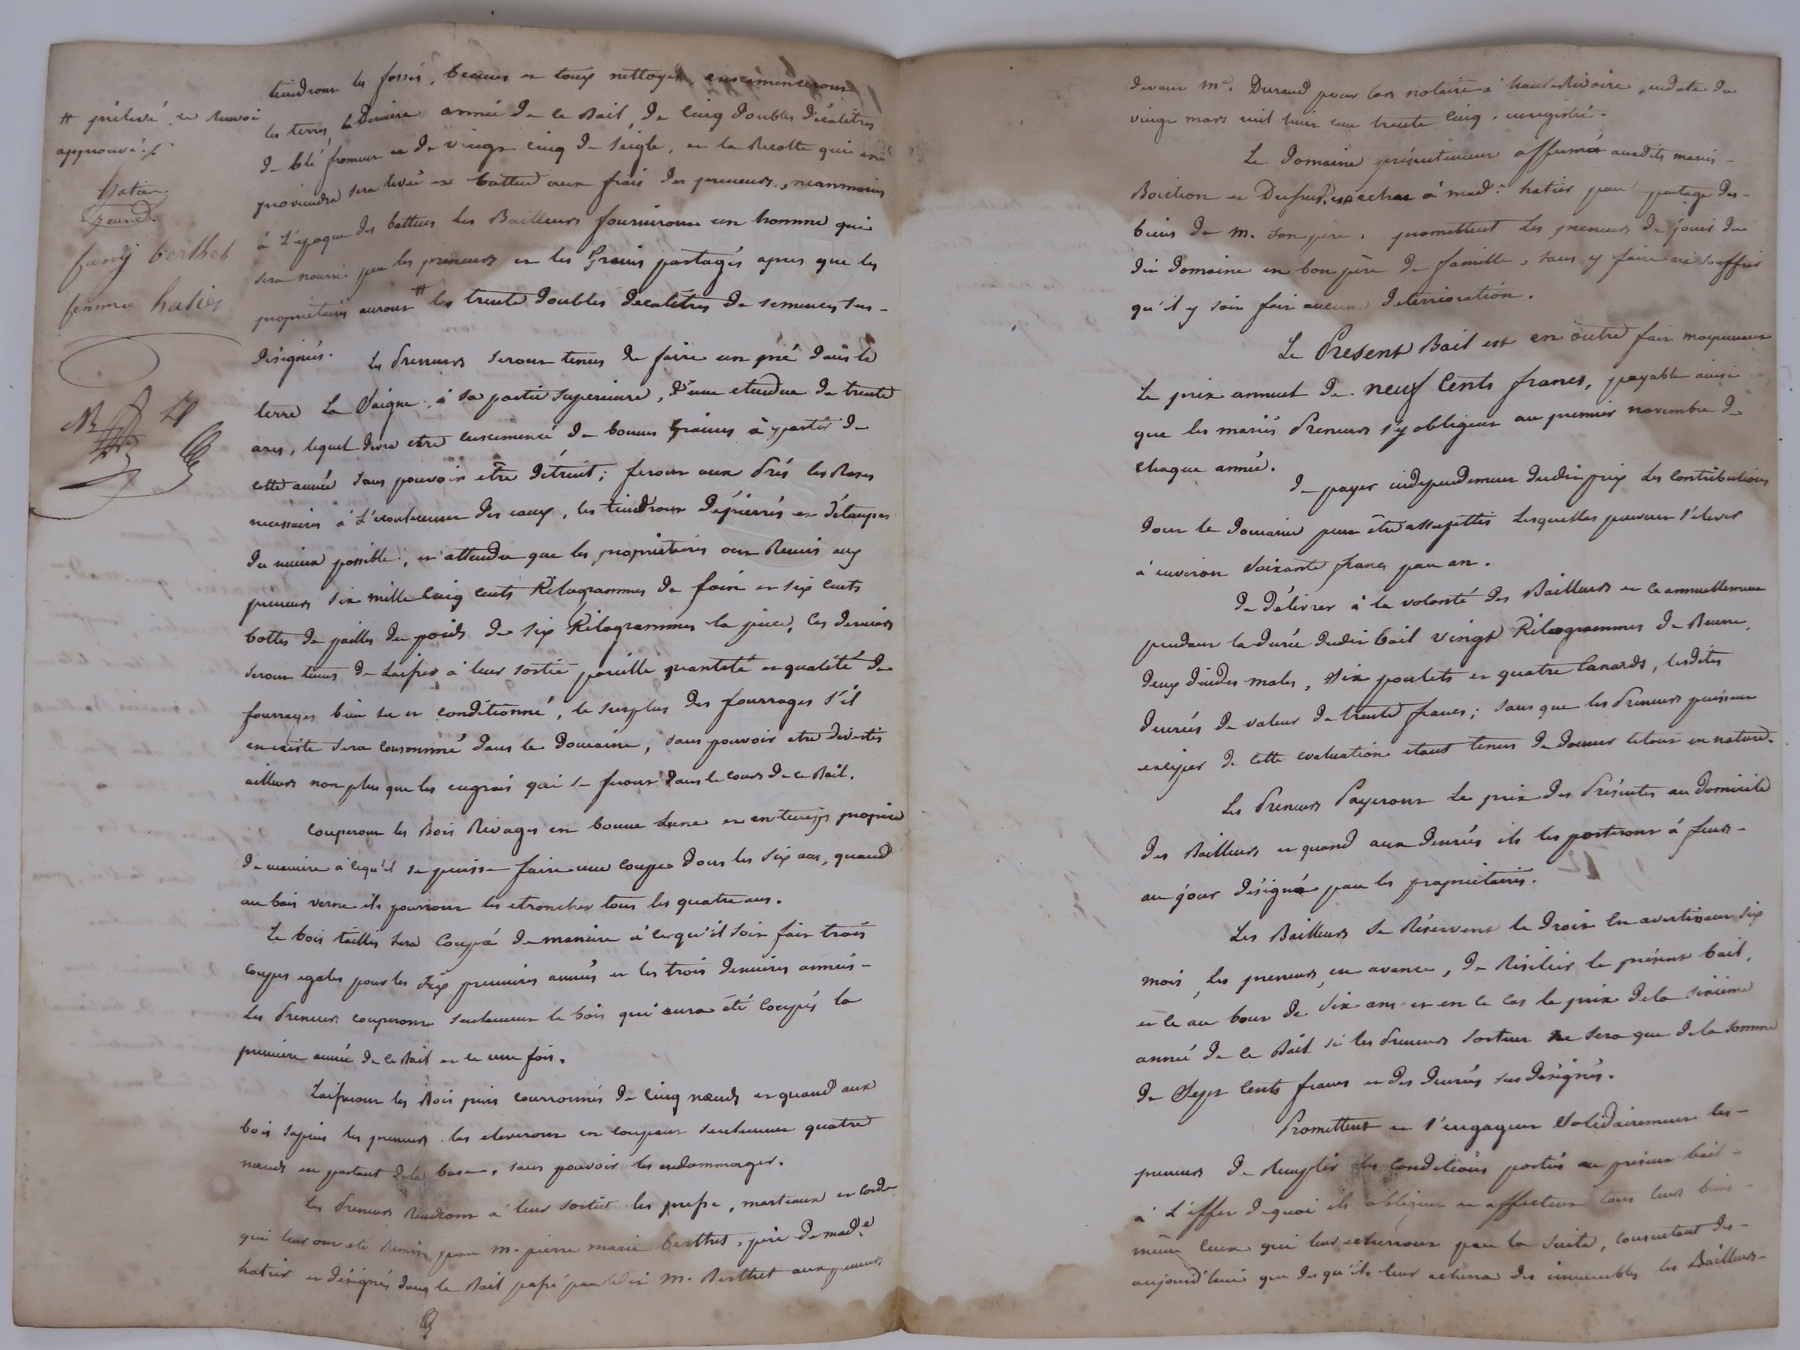 # prélevé, ce Renvoi
approuvé ./.
hatier
fany berthet
femme hatier
tiendront les fossés, beaux et toux nettoyés ensemenceront
les terres, la dernière année de ce Bail, de cinq doubles décalitres
de blé froment et de vingt cinq de seigle, et la Recolte qui en
proviendra sera levée et battue aux frais des preneurs, néanmoins
à l'époque des battues les Bailleurs fourniront un homme qui
sera nourri par les preneurs et les Grains partagés après que les
propriétaires auront # les trente doubles décalitres de semences sus-
désignés.
Les Preneurs seront tenus de faire un pré dans la
terre La Saigne, à sa partie superieure, d'une etendue de trente
ares, lequel devra etre ensemencé de bonnes graines à partir de
cette année sans pouvoir être détruit; feront aux Prés les Rases
necessaires à l'écoulement des eaux, les tiendront dépierrés et détaupés
du mieux possible; et attendu que les propriétaires ont Remis aux
preneurs six mille cinq cents Kilogrammes de foin et six cents
bottes de pailles du poids de six Kilogrammes la pièce, ces derniers
seront tenus de Laisser à leur sortie pareille quantité et qualité de
fourrages bien sec et conditionné, le surplus des fourrages s'il
en existe sera consommé dans le domaine, sans pouvoir etre divertis
ailleurs non plus que les engrais qui se feront dans le cours de ce Bail.
Couperont les Bois Rivages en bonne Lune et en temps propice
de manière à ce qu'il se puisse faire une coupe dans les six ans, quand
au bois verne ils pourront les etroncher tous les quatre ans.
Le bois taillis sera Coupé de manière à ce qu'il soit fait trois
coupes egales pour les six premieres années et les trois dernières années-
Les Preneurs couperont seulement le bois qui aura été coupés la
première année de ce Bail et ce une fois.
Laisseront les Bois pins couronnés de cinq nœuds et quand aux
bois sapins les preneurs les eleveront en coupant seulement quatre
nœuds en partant de la base, sans pouvoir les endommager.
Les Preneurs Rendront à leur sortie les presse, marteaux et corde
qui leur ont été Remis par M. pierre marie Berthet, père de mad.e
hatier et désignés dans le Bail passé par ledit M. Berthet aux preneurs
devant M.e Durand pour lors notaire à haute Rivoire, en date du
vingt mars mil huit cent trente cinq, enregistré.
Le domaine présentement affermé auxdits mariés-
Boichon et Dupuy, est echu à mad.e hatier par le partage des-
biens de M. Son père, promettent les preneurs de jouir du
dit domaine en bon père de famille, sans y faire ni souffrir
qu'il y soit fait aucune déterrioration.
Le Présent Bail est en outre fait moyennant
Le prix annuel de neuf Cents francs, payable ainsi
que les mariés Preneurs s'y obligent au premier novembre de
chaque année.
de payer independemment dudit prix Les Contributions
dont le domaine peut être assujettis Lesquelles peuvent s'élever
à environ Soixante francs par an.
de délivrer à la volonté des Bailleurs et ce annuellement
pendant la durée dudit bail vingt Kilogrammes de Beurre,
deux dindes mâles, six poulets et quatre Canards, lesdites
denrées de valeur de trente francs; sans que les Preneurs puissent
exciper de cette evaluation etant tenus de donner le tout en nature.
Les Preneurs Payeront Le prix des Présentes au domicile
des Bailleurs et quand aux denrées ils les porteront à leurs-
au jour désigné par les propriétaires.
Les Bailleurs se Réservent le droit en avertissant six
mois, les preneurs, en avance, de Résilier le présent bail,
et ce au bout de six ans et en ce cas le prix de la sixième
année de ce Bail si les Preneurs sortent ne sera que de la somme
de Sept Cents francs et des denrées susdésignés.
Promettent et s'engagent Solidairement les-
preneurs de Remplir les conditions portés au présent bail-
à l'effet de quoi ils obligent et affectent tous leurs biens-
même ceux qui leur echerront par la suite, consentant dès-
aujourd'hui que dès qu'il leur echerra des immeubles les Bailleurs-